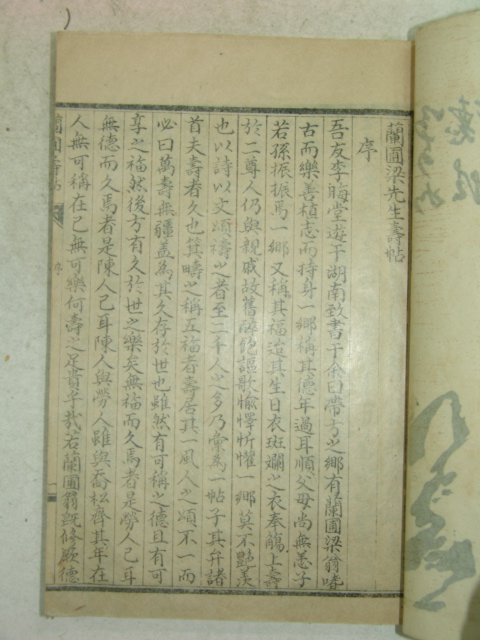 蘭圃梁先生壽帖
序
吾友李晦堂遊于湖南致書于余曰帶方之鄕有蘭圃梁翁嗜
古而樂善植志而持身一鄕稱其德年過耳順父母尙無恙子
若孫振振焉一鄕又稱其福迨其生日衣斑斕之衣奉觴上壽
於二尊人仍與親戚故舊醉飽謳歌愉懌忻懽一鄕莫不艶羨
也以詩以文頌禱之者至二千人之多乃彙爲一帖子其弁諸
首夫壽者久也箕疇之稱五福者壽居其一風人之頌不一而
必曰萬壽無疆盖爲其久存於世也雖然有可稱之德且有可
享之福然後方有久於世之樂矣無福而久焉者是勞人已耳
無德而久焉者是陳人已耳陳人與勞人雖與喬松齊其年在
人無可稱在己無可樂何壽之足貴乎哉若蘭圃翁旣修厥德
蘭圃壽帖
序
一